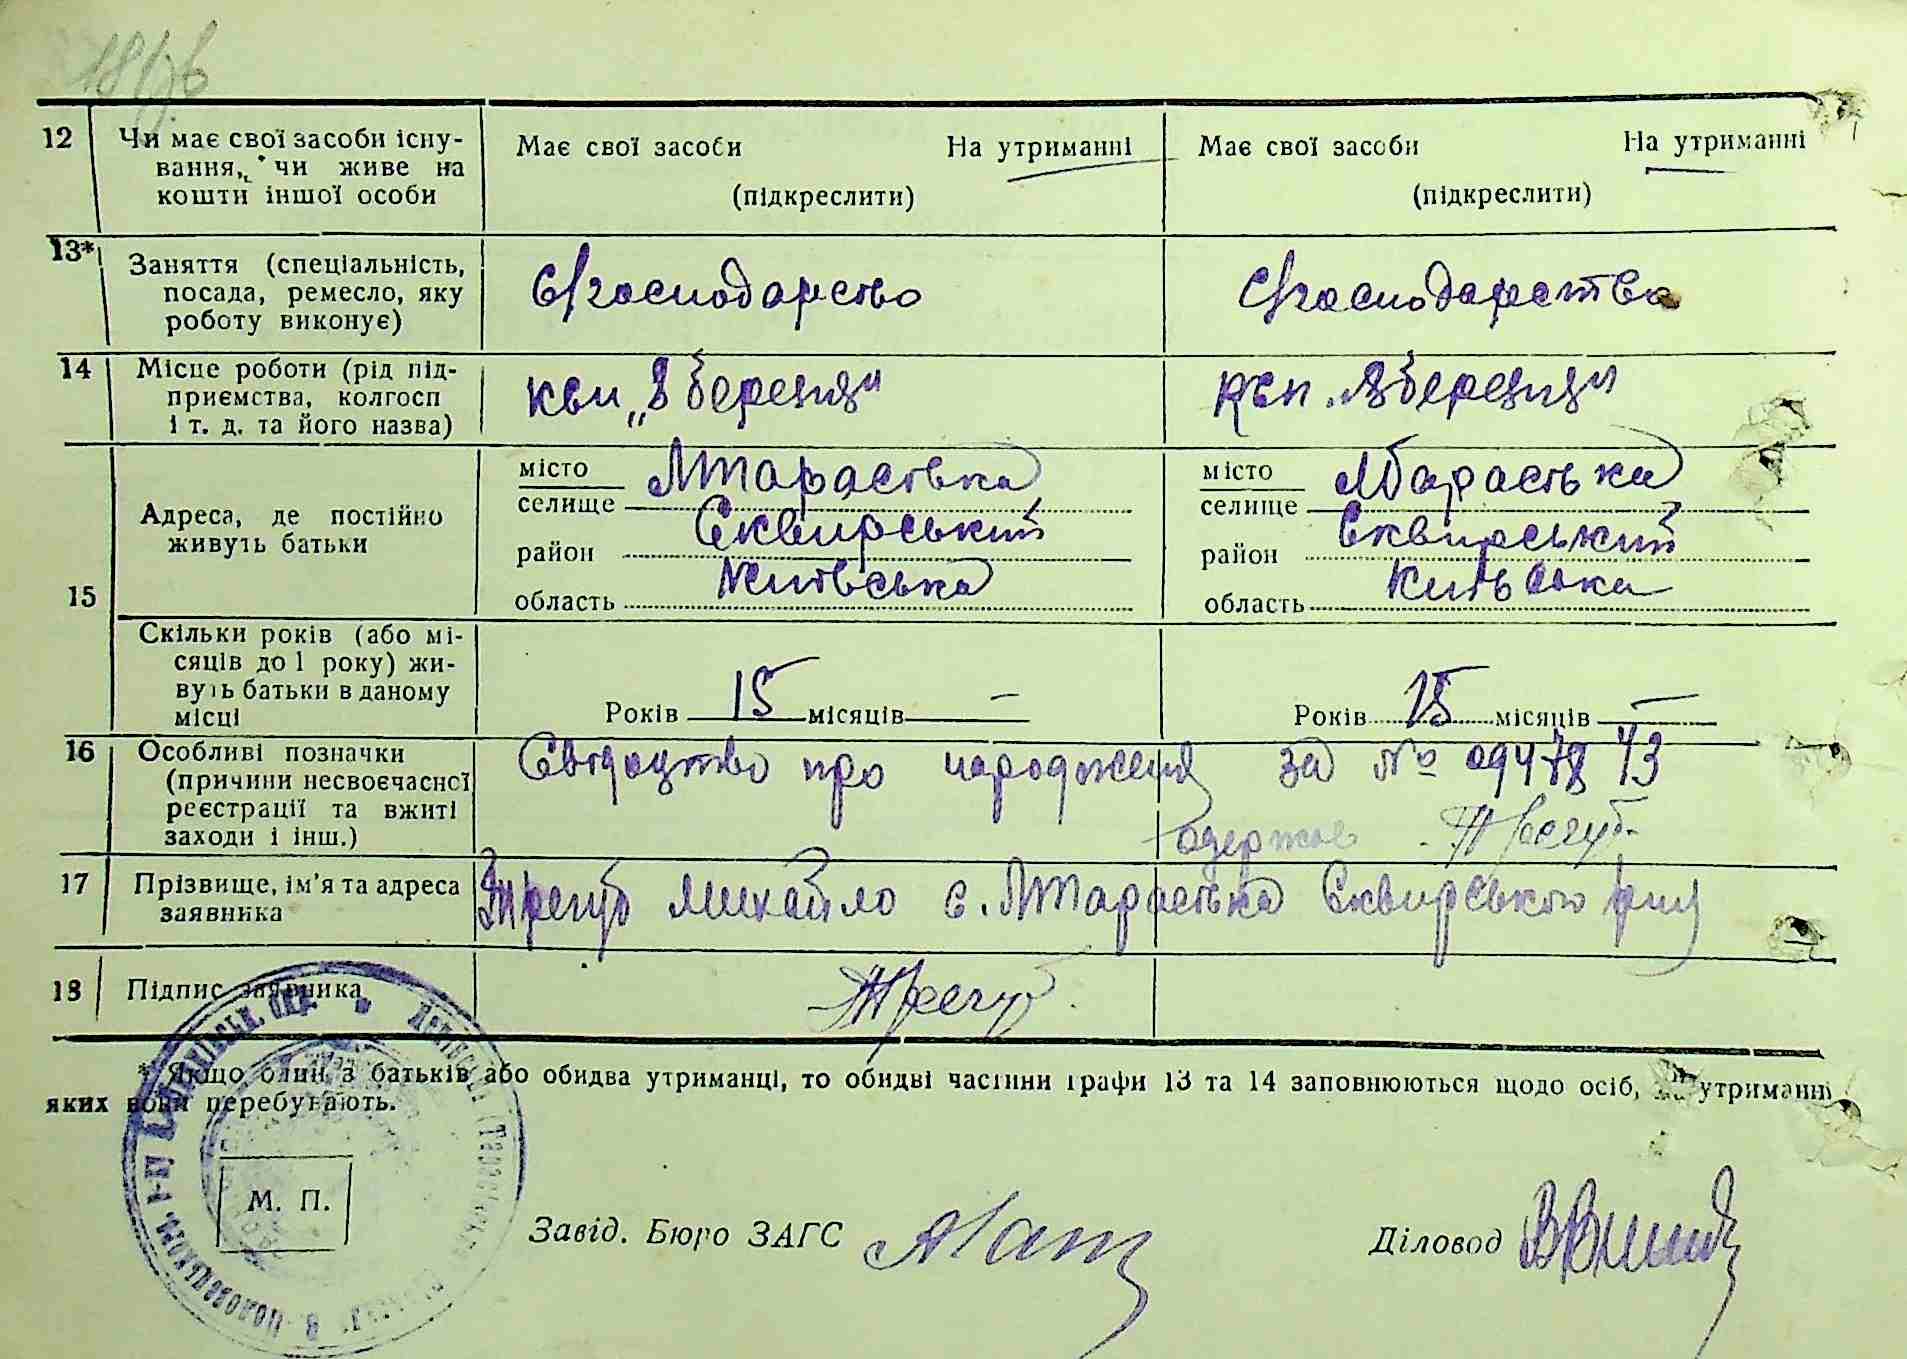 12
Чи має свої засоби існу-
вання, чи живе на
кошти іншої особи
Має свої засоби На утриманні
(підкреслити)
Має свої засоби На утриманні
(підкреслити)
13*
Заняття (спеціальність,
посада, ремесло, яку
роботу виконує)
С/господарство
С/господарство
14
Місце роботи (рід під-
приємства, колгосп
і т. д. та його назва)
15
Адреса, де постійно
живуть батьки
місто
селище
район Сквирський
область Київська
місто
селище
район Сквирський
область Київська
Скільки років (або мі-
сяців до 1 року) жи-
вуть батьки в даному
місці
Років 15 місяців —
Років 15 місяців —
16
Особливі позначки
(причини несвоєчасної
реєстрації та вжиті
заходи і інш.)
Свідоцтво про народження за №
одержав
17
Прізвище, ім'я та адреса
заявника
Михайло с. Сквирського
18
Підпис заявника
* Якщо один з батьків або обидва утриманці, то обидві частини графи 13 та 14 заповнюються щодо осіб, на утриманні
яких вони перебувають.
М. П.
Завід. Бюро ЗАГС
Діловод